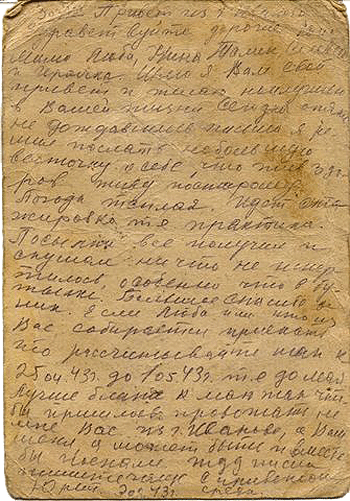 Привет из г.
здравствуйте дорогие
Мама Люба, Нина Толик
и Ирайка. Шлю я Вам свой
привет и желаю наилучшего
в Вашей жизни Сегодня опять
не дождавшись письма я ре-
шил послать небольшую
весточку о себе, что жив здо-
ров живу по старому.
Погода теплая. Идет ста-
жировка т.е практика.
Посылки все получил и
скушал ничто не испор-
тилось, особенно что в бу-
тылки. Большое спасибо
Если Люба или кто из
Вас собирается приехать
то рассчитывайте так к
25 04.43г. до 1.05 43г. т.е до мая
лучше ближе к мая так что
бы пришлось провожать не
мне Вас из г. Иваново, а Вам
меня а может быть и вместе
бы поехали. Жду писем
с приветом
Юрий 30 43г.